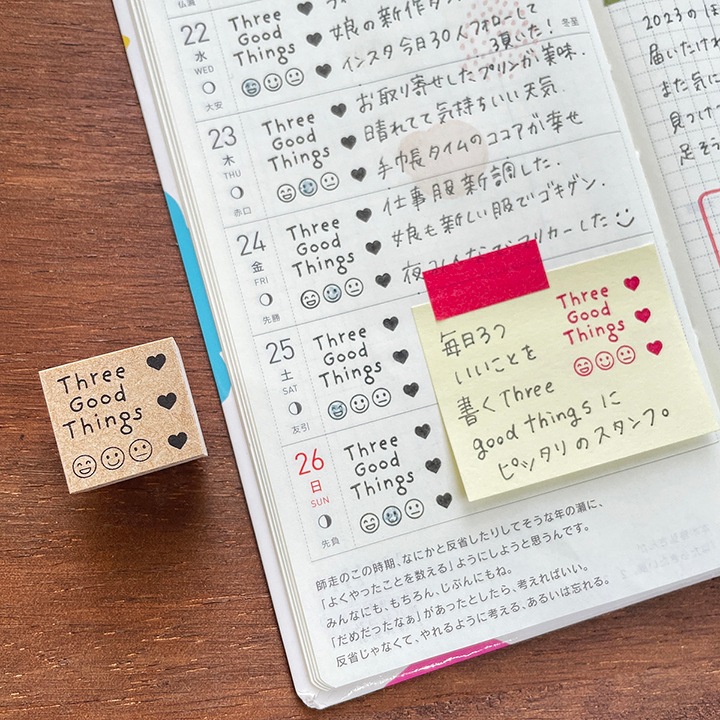 仏滅
22
水
WED
大安
Three
Good
Things
娘の新作
インスタ今日30人フォローして
頂いた!
冬至
お取り寄せしたプリンが美味.
23
木
THU
赤口
Three
Good
Things
晴れてて気持ちいい天気.
手帳タイムのココアが幸せ
仕事服新調した.
24
金
FRI
先勝
Three
Good
Things
娘も新しい服でゴキゲン.
カーした
25
土
SAT
友引
Three
Good
Things
26
日
SUN
先負
Three
Good
Things
毎日3つ
いいことを
書くThree
good things に
ピッタリのスタンプ。
Three
Good
Things
Three
Good
Things
師走のこの時期、なにかと反省したりしてそうな年の瀬に、
「よくやったことを数える」ようにしようと思うんです。
みんなにも、もちろん、じぶんにもね。
「だめだったなぁ」があったとしたら、考えればいい。
反省じゃなくて、やれるように考える、あるいは忘れる。
2023のほ
届いたけれ
また気に
見つけ
足そう